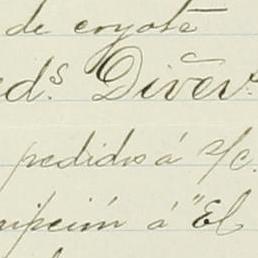 de coyote
ed.s Divers.
pedidos á s/c.
ripción á "El